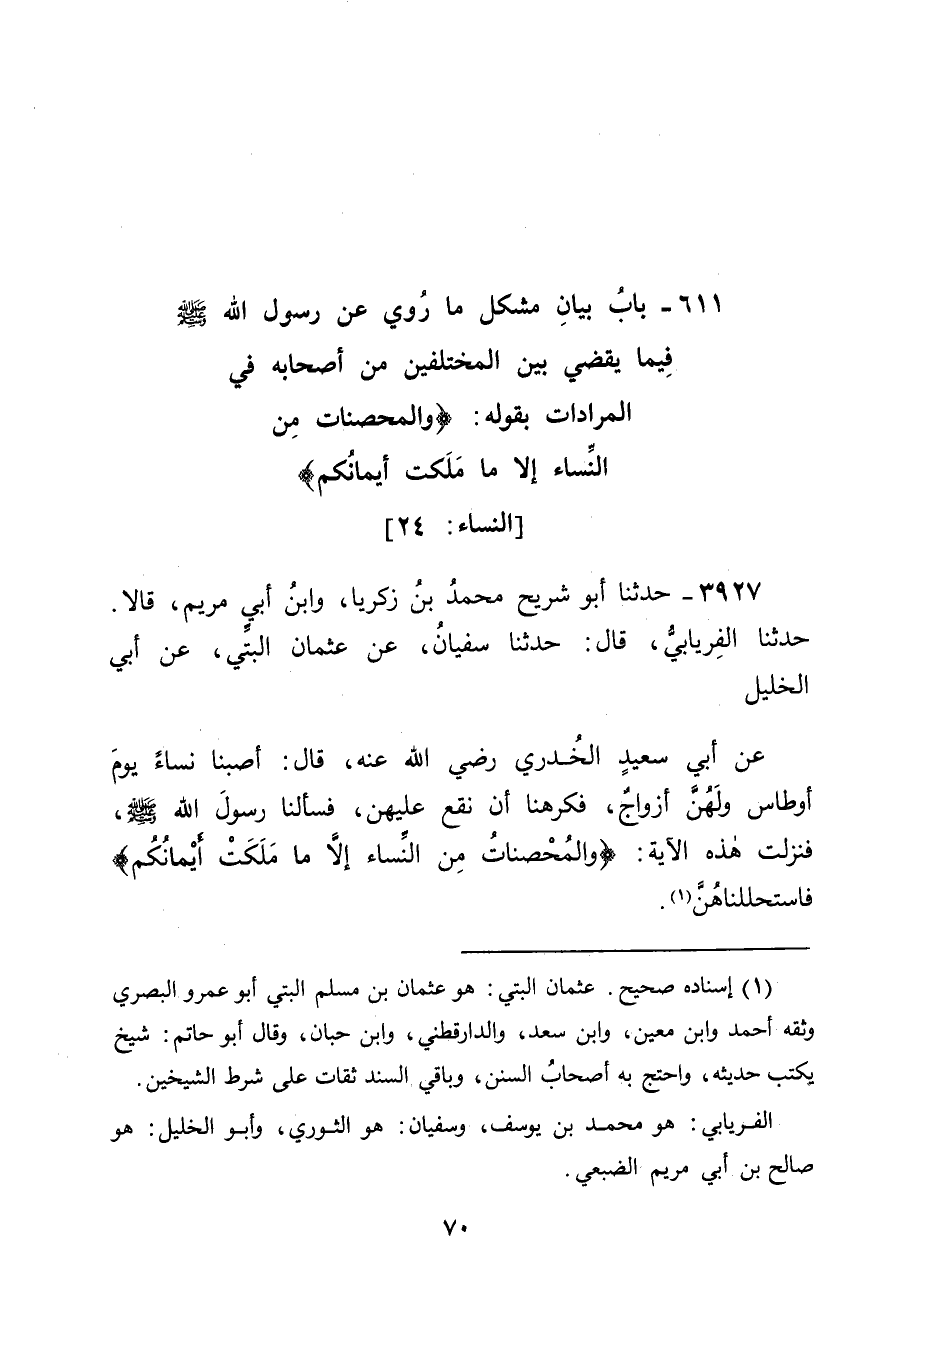 ٦١١ـ بابُ بيانِ مشكل ما رُوي عن رسول الله ﷺ
فِيما يقضي بين المختلفين من أصحابه في
المرادات بقوله: ﴿والمحصنات مِن
النِّساء إلا ما مَلَكت أيمانُكم﴾
[النساء: ٢٤]
٣٩٢٧ـ حدثنا أبو شريح محمدُ بنُ زكريا، وابنُ أبي مريم، قالا.
حدثنا الفِريابيُّ، قال: حدثنا سفيانُ، عن عثمان البتِّي، عن أبي
الخليل
عن أبي سعيدٍ الخُدري رضي الله عنه، قال: أصبنا نساءً يومَ
أوطاس ولَهُنَّ أزواجٌ، فكرهنا أن نقع عليهن، فسألنا رسولَ الله ﷺ،
فنزلت هٰذه الآية: ﴿والمُحْصناتُ مِن النِّساء إلَّا ما مَلَكَتْ أَيْمانُكُم﴾
فاستحللناهُنَّ(١).
(١) إسناده صحيح. عثمان البتي: هو عثمان بن مسلم البتي أبو عمرو البصري
وثقه أحمد وابن معين، وابن سعد، والدارقطني، وابن حبان، وقال أبو حاتم: شيخ
يكتب حديثه، واحتج به أصحابُ السنن، وباقي السند ثقات على شرط الشيخين.
الفريابي: هو محمد بن يوسف، وسفيان: هو الثوري، وأبو الخليل: هو
صالح بن أبي مريم الضبعي.
٧٠